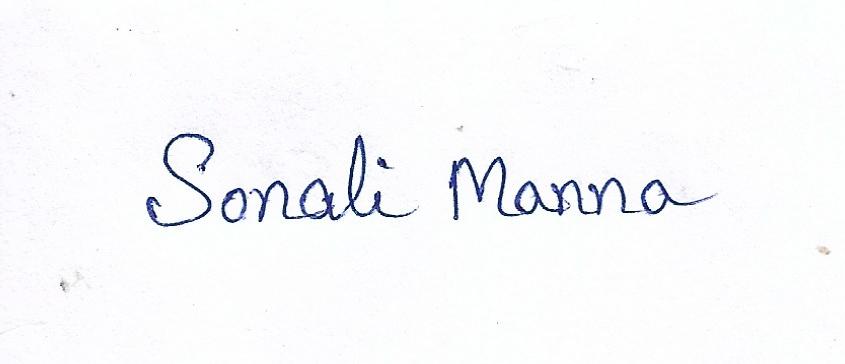 Sonali Manna